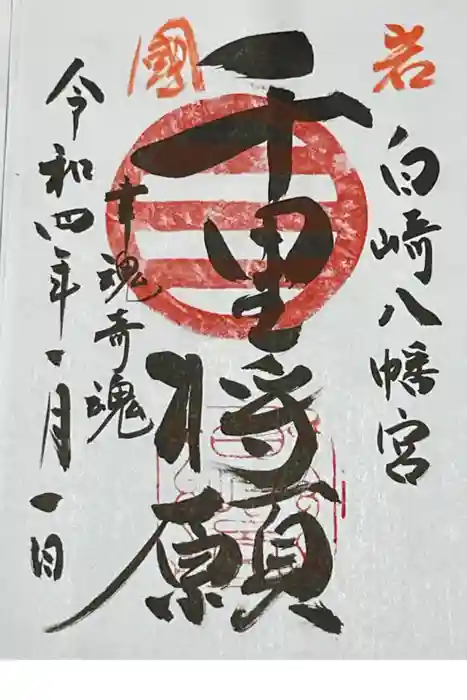 岩
國
白崎八幡宮
千里将願
幸魂奇魂
令和四年一月一日